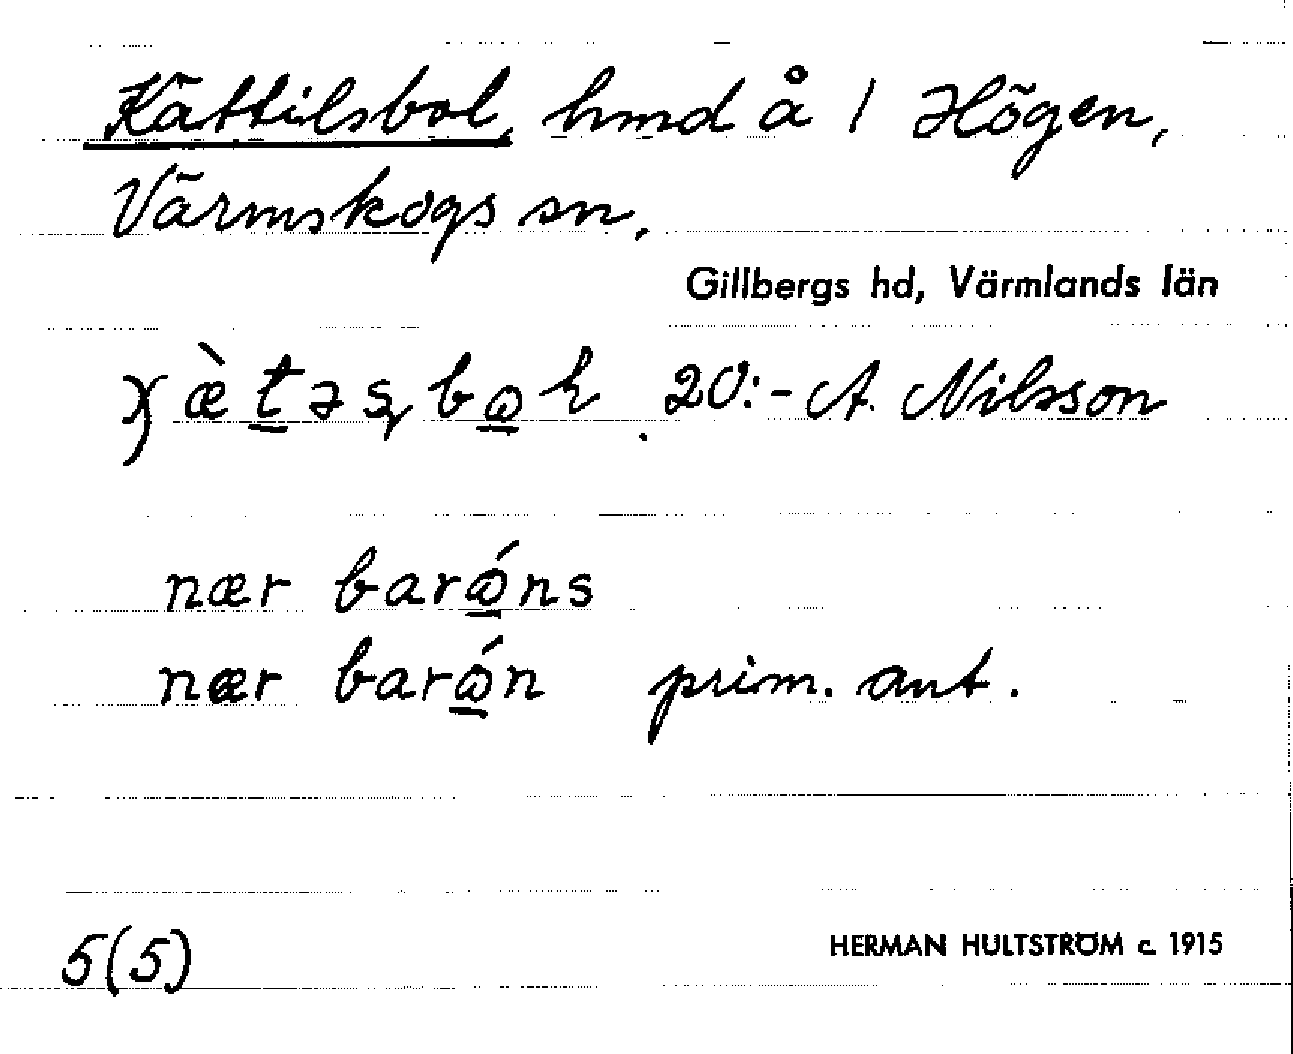 Kättilsbol, hmd å 1 Högen,
Värmskogs sn,
Gillbergs hd, Värmlands län
20:- A. Nilsson
nær barón̲s
nær barón prim. ant.
5(5)
HERMAN HULTSTRÖM c. 1915